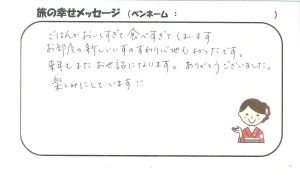 旅の幸せメッセージ（ペンネーム：　　　　　　　）
ごはんがおいしすぎて食べすぎてしまいます
お部屋の新しいいすのすわり心地もよかったです。
来年もまたお世話になります。ありがとうございました。
楽しみにしています!!